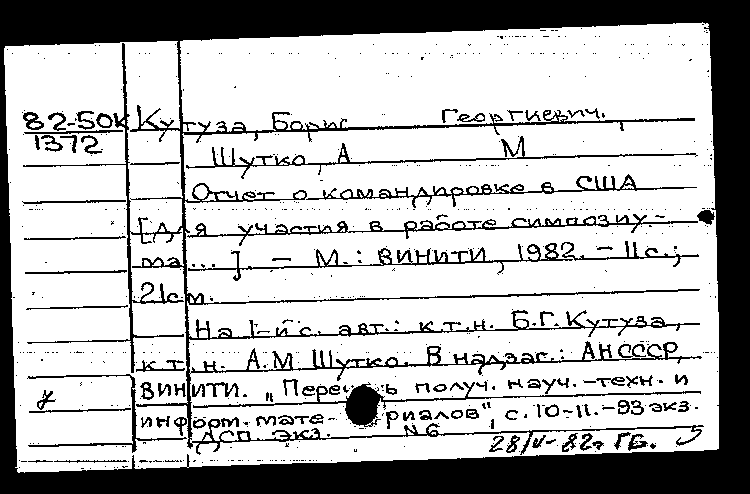 82-50к Кутуза, Борис Георгиевич.,
1372
Шутко, А М
Отчет о командировке в США
[Для участия в работе симпозиу-
ма...]. – М.: ВИНИТИ, 1982. – 11 с.;
21 см.
На 1-й с. авт.: к.т.н. Б.Г. Кутуза,
к т. н. А.М Шутко. В надзаг.: АН СССР,
ВИНИТИ. „Перечень получ. науч.-техн. и
информ. мате- риалов", с. 10-11.-93 экз.
ДСП. экз. N6
28/V-82г ГБ. 5